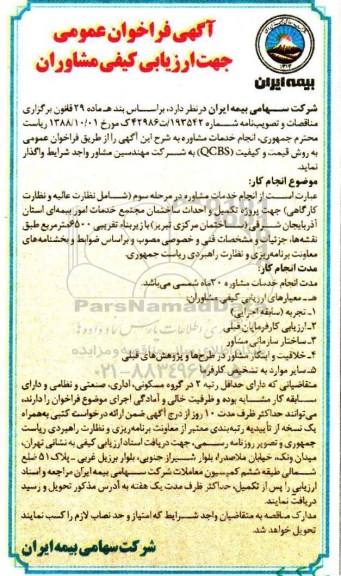 آگهی فراخوان عمومی
جهت ارزیابی کیفی مشاوران
بیمه ایران
شرکت سهامی بیمه ایران درنظر دارد، براساس بند هـ ماده ۲۹ قانون برگزاری
مناقصات و تصویب‌نامه شماره ۱۹۳۵۴۲/ت۴۲۹۸۶ک مورخ ۱۳۸۸/۱۰/۰۱ ریاست
محترم جمهوری، انجام خدمات مشاوره به شرح این آگهی را از طریق فراخوان عمومی
به روش قیمت و کیفیت (QCBS) به شرکت مهندسین مشاور واجد شرایط واگذار
نماید.
موضوع انجام کار:
عبارت است از انجام خدمات مشاوره در مرحله سوم (شامل نظارت عالیه و نظارت
کارگاهی) جهت پروژه تکمیل و احداث ساختمان مجتمع خدمات امور بیمه‌ای استان
آذربایجان شرقی (ساختمان مرکزی تبریز) با زیربنای تقریبی ۶۵۰۰مترمربع طبق
نقشه‌ها، جزئیات و مشخصات فنی و خصوصی مصوب و براساس ضوابط و بخشنامه‌های
معاونت برنامه‌ریزی و نظارت راهبردی ریاست جمهوری.
مدت انجام کار:
مدت انجام خدمات مشاوره ۲۰ماه شمسی می‌باشد.
هـ- معیارهای ارزیابی کیفی مشاوران:
۱- تجربه (سابقه اجرایی)
۲- ارزیابی کارفرمایان قبلی
۳- ساختار سازمانی مشاور
۴- خلاقیت و ابتکار مشاور در طرح‌ها و پژوهش‌های قبلی
۵- سایر موارد به تشخیص کارفرما
متقاضیانی که دارای حداقل رتبه ۲ در گروه مسکونی، اداری، صنعتی و نظامی و دارای
سابقه کار مشابه بوده و ظرفیت خالی و آمادگی اجرای موضوع فراخوان را دارند،
می‌توانند حداکثر ظرف مدت ۱۰ روز از درج آگهی ضمن ارائه درخواست کتبی به‌همراه
یک نسخه از تاییدیه رتبه‌بندی معتبر از معاونت برنامه‌ریزی و نظارت راهبردی ریاست
جمهوری و تصویر روزنامه رسمی، جهت دریافت اسناد ارزیابی کیفی به نشانی تهران،
میدان ونک، خیابان ملاصدرا، بلوار شیراز جنوبی، بلوار برزیل غربی - پلاک۵۱ ضلع
شمالی طبقه ششم کمیسیون معاملات شرکت سهامی بیمه ایران مراجعه و اسناد
ارزیابی را پس از تکمیل، حداکثر ظرف مدت یک هفته به آدرس مذکور تحویل و رسید
دریافت نمایند.
مدارک مناقصه به متقاضیان واجد شرایط که امتیاز و حد نصاب لازم را کسب نمایند
تحویل خواهد شد.
شرکت سهامی بیمه ایران